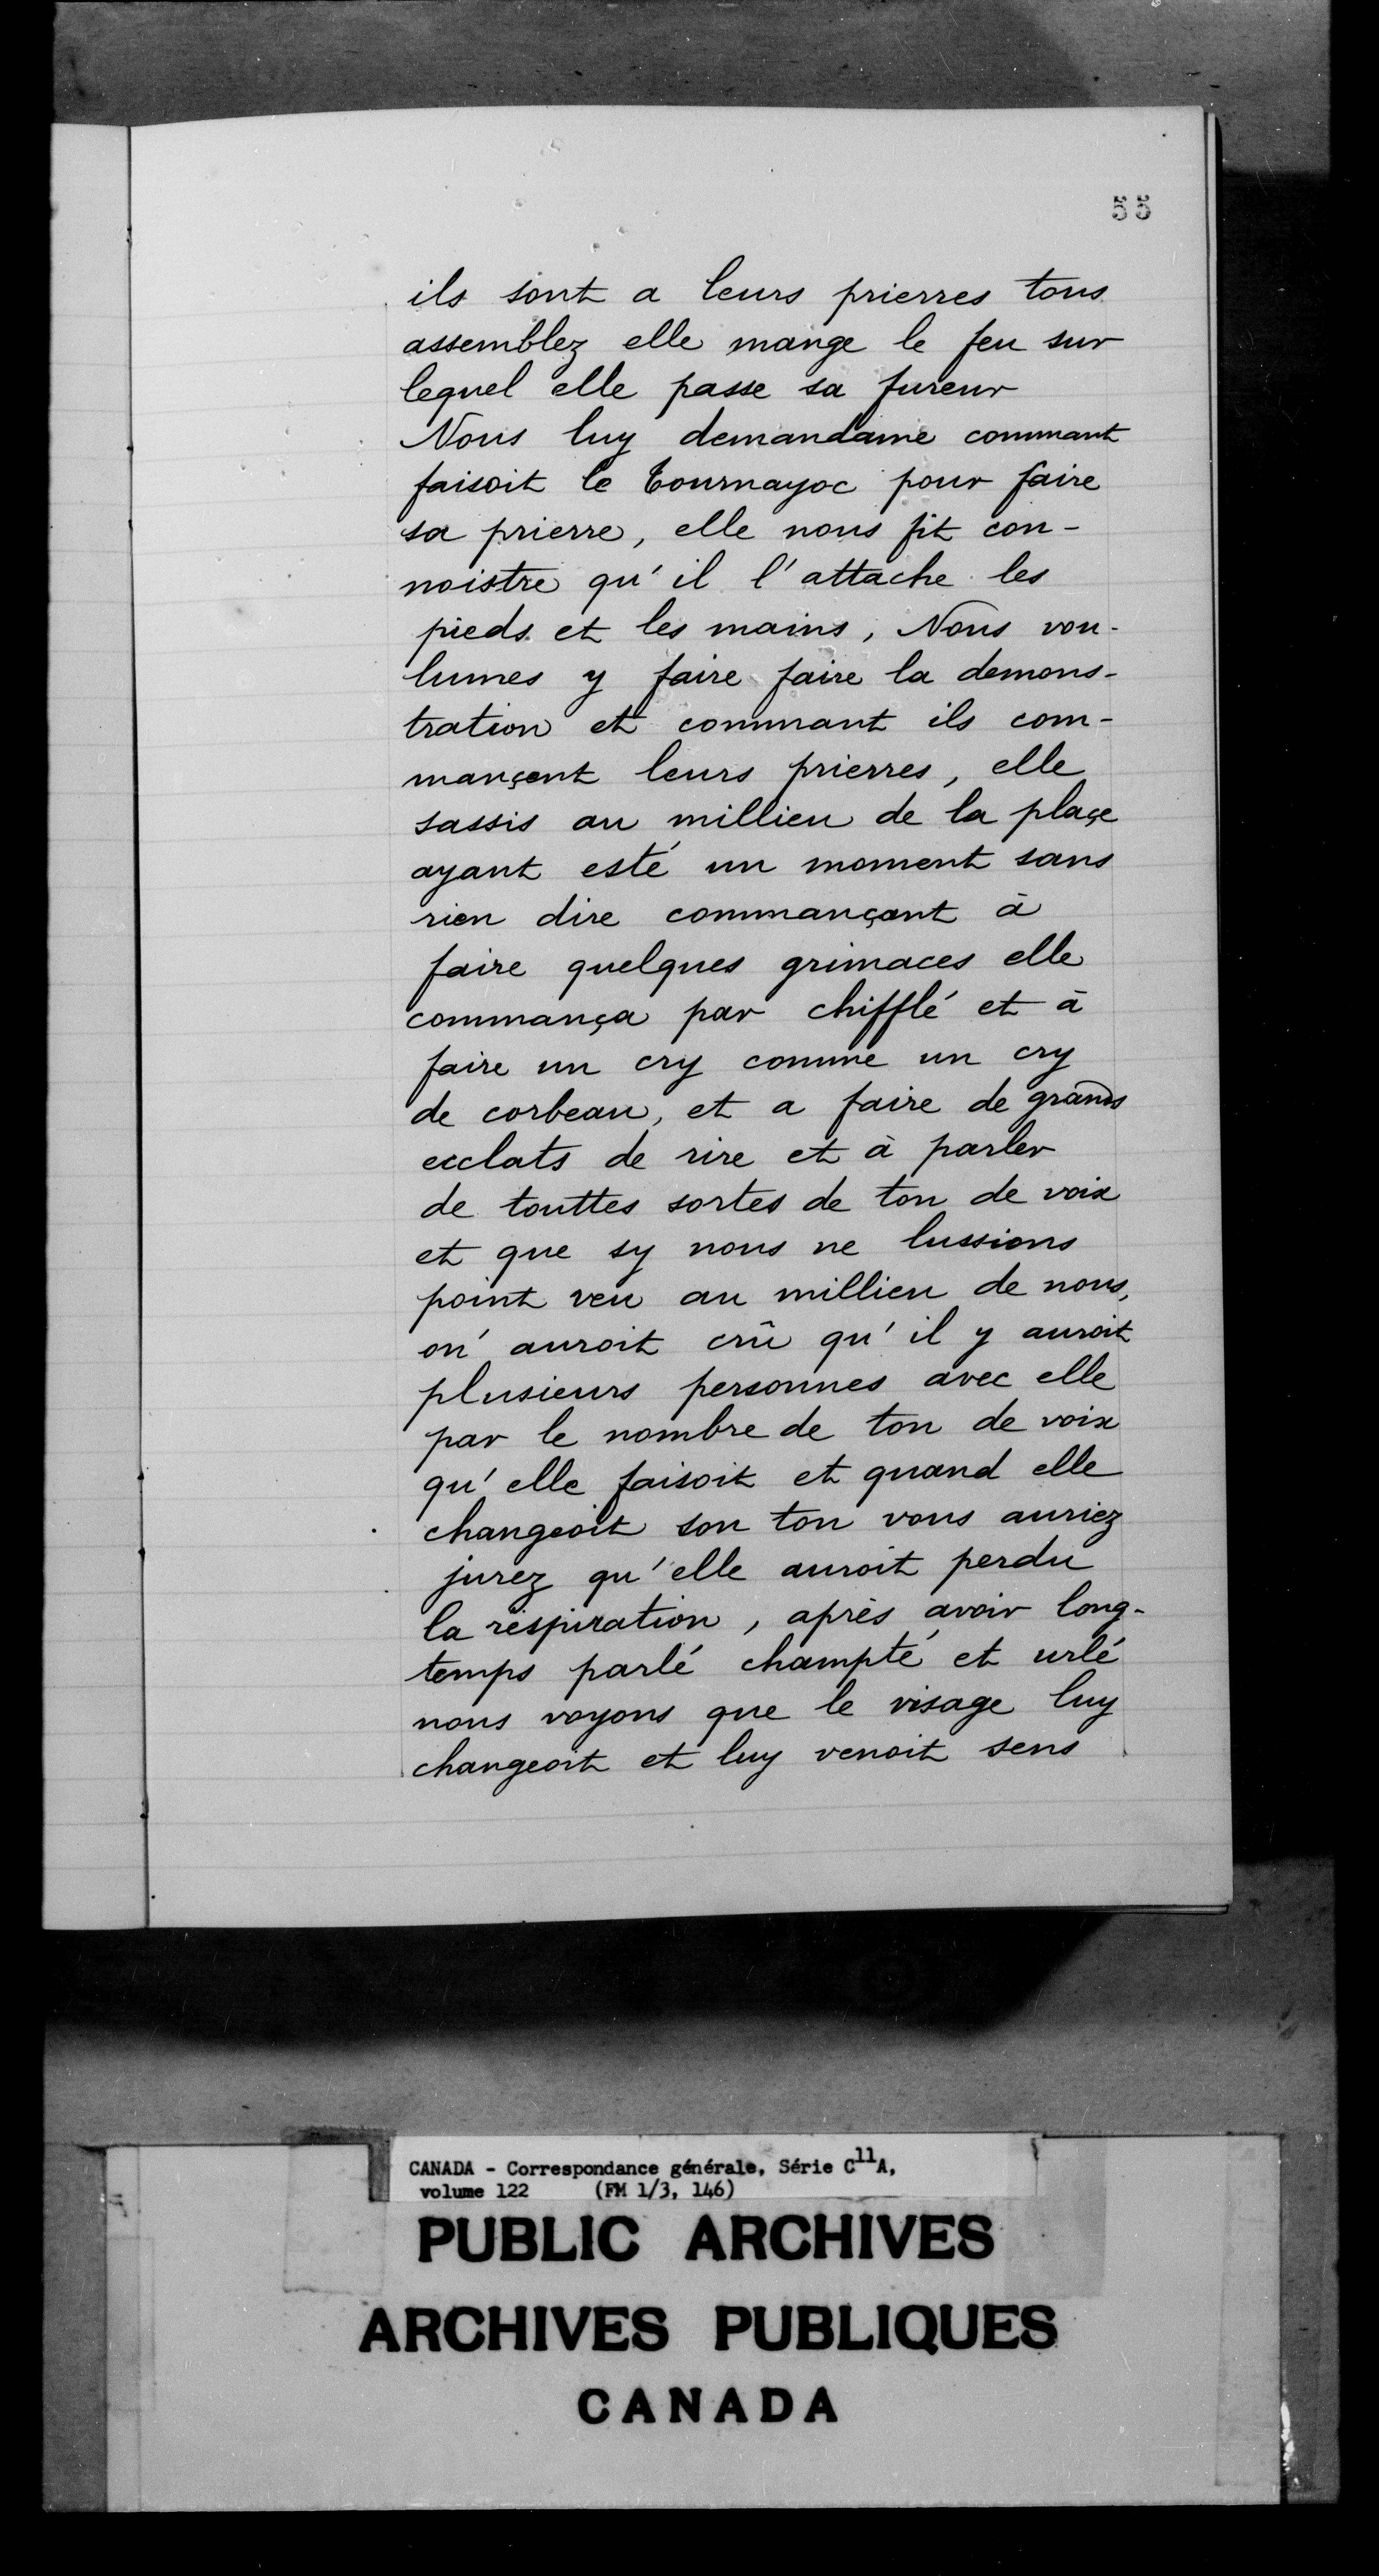 55
ils sont a leurs prierres tous
assemblez elle mange le feu sur
lequel elle passe sa fureur
Nous luy demandame commant
faisoit le Tournayoc pour faire
sa prierre, elle nous fit con-
noistre qu'il l'attache les
pieds et les mains, Nous vou-
lumes y faire faire la demons-
tration et commant ils com-
mançent leurs prierres, elle
sassis au millieu de la plaçe
ayant esté un moment sans
rien dire commançant à
faire quelques grimaces elle
commança par chifflé et à
faire un cry comme un cry
de corbeau, et a faire de grands
ecclats de rire et à parler
de touttes sortes de ton de voix
et que sy nous ne lussions
point veu au millieu de nous,
on' auroit crû qu'il y auroit
plusieurs personnes avec elle
par le nombre de ton de voix
qu'elle faisoit et quand elle
changeoit son ton vous auriez
jurez qu'elle auroit perdu
la respiration, après avoir long-
temps parlé champté et urlé
nous voyons que le visage luy
changeoit et luy venoit sens
CANADA - Correspondance générale, Série C11A,
volume 122 (FM 1/3, 146)
PUBLIC ARCHIVES
ARCHIVES PUBLIQUES
CANADA